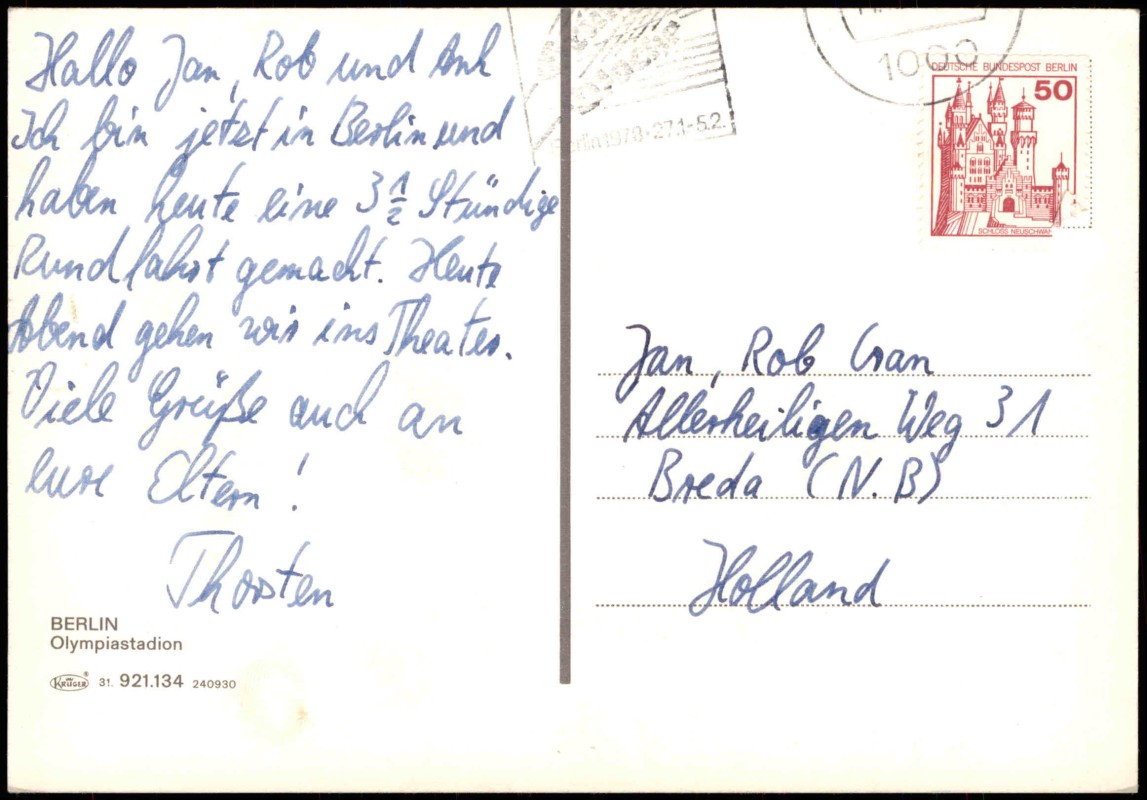 Hallo Jan, Rob und Anh
Ich bin jetzt in Berlin und
haben heute eine 3 1/2 Stündige
Rundfahrt gemacht. Heute
Abend gehen wir ins Theater.
Viele Grüße auch an
eure Eltern!
Thorsten
BERLIN
Olympiastadion
KRÜGER 31. 921.134 240930
Berlin 1978·27.1.-5.2.
1000
DEUTSCHE BUNDESPOST BERLIN
50
SCHLOSS NEUSCHWAN
Jan, Rob Cran
Allerheiligen Weg 31
Breda (N.B)
Holland